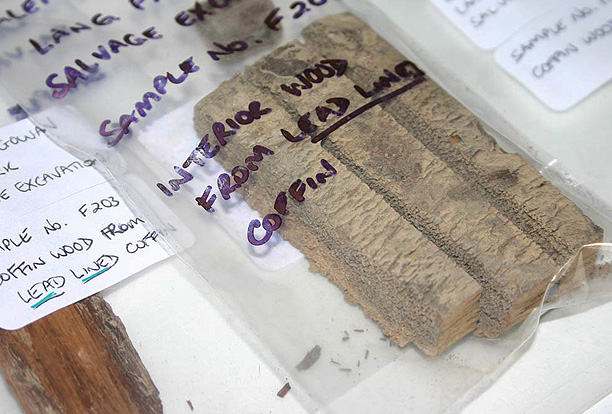 LANG
SALVAGE EXCAV
SAMPLE NO. F20
INTERIOR WOOD
FROM LEAD LINED
COFFIN
GOWAN
RK
E EXCAVATION
MPLE NO. F203
COFFIN WOOD FROM
LEAD LINED COFFIN
SALVAG
SAMPLE NO.
COFFIN WOO